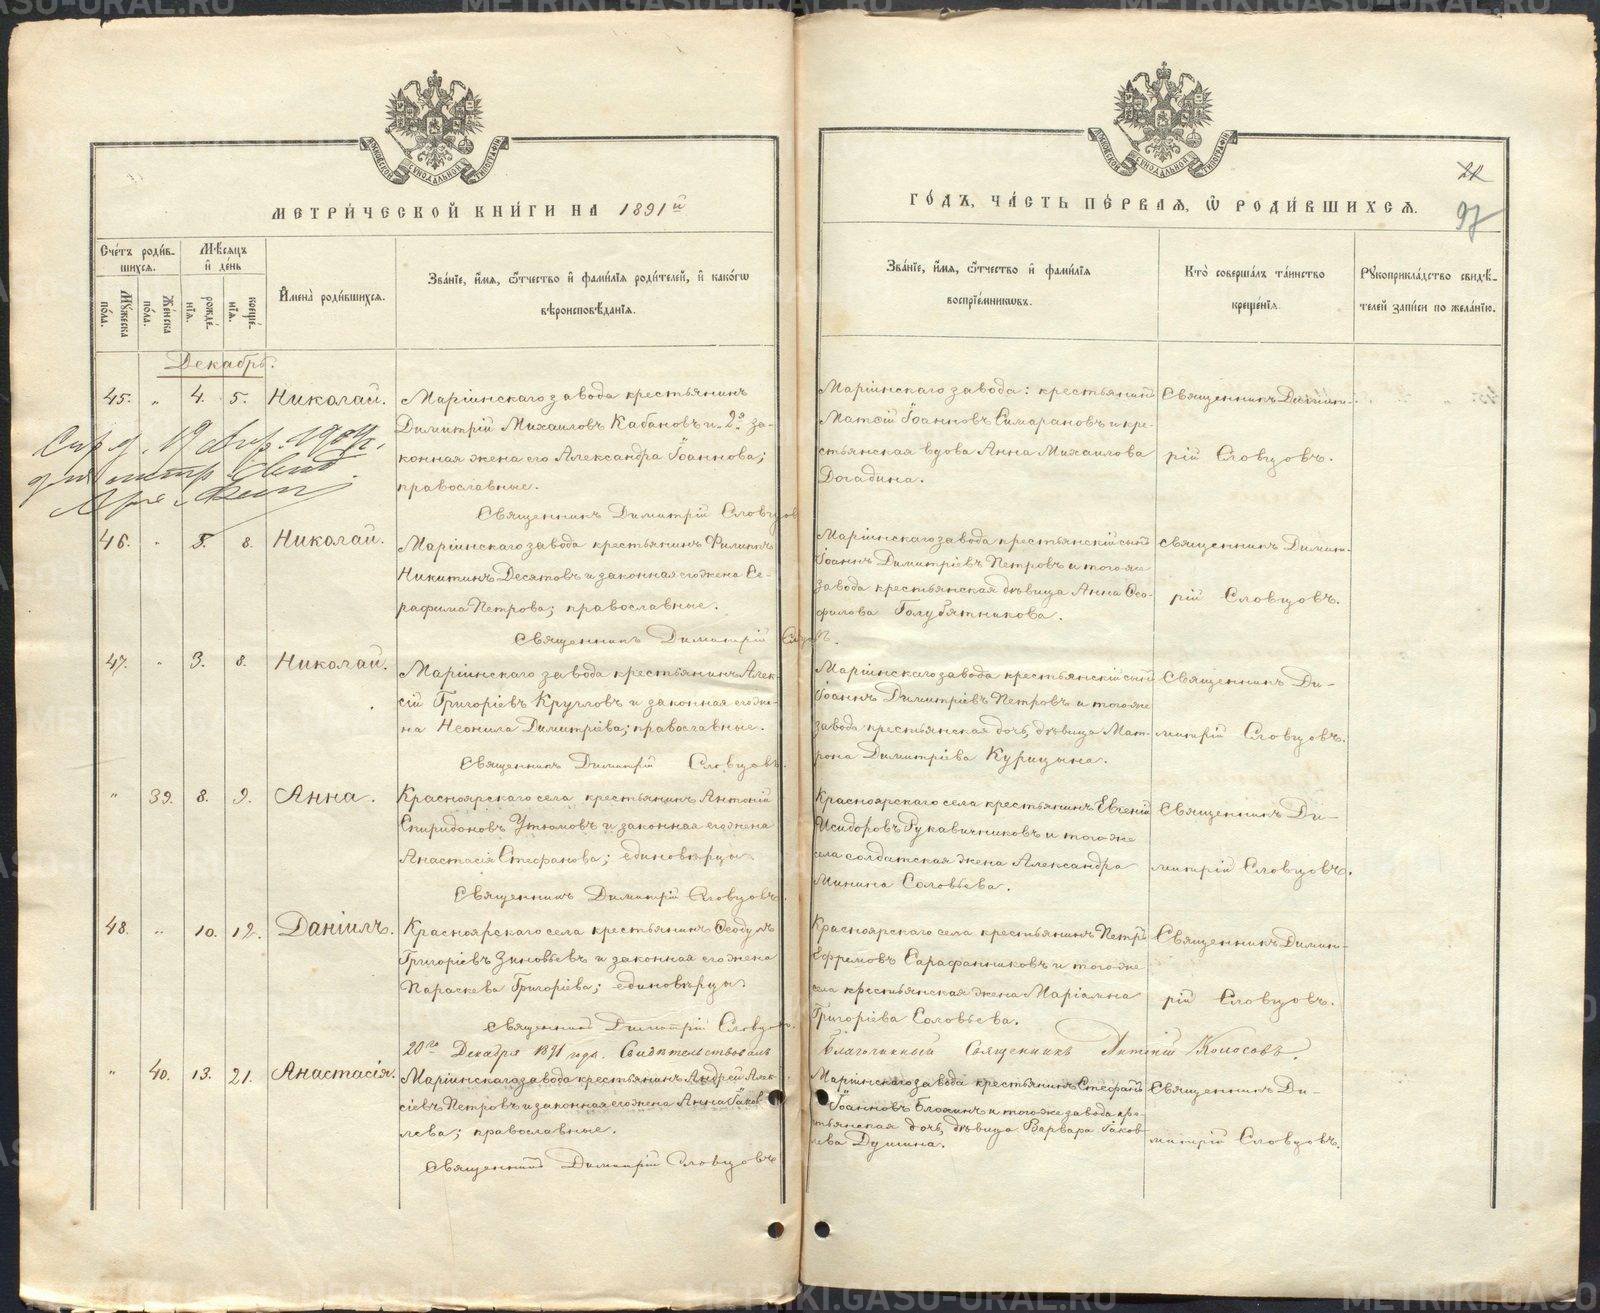 МЕТРИ́ЧЕСКОЙ КНИ́ГИ НА 1891й
Сче́тъ роди́в-
шихся.
Мѣ́сяцъ
и҆ де́нь
Мꙋ́жеска
по́ла.
Же́нска
по́ла.
рожде́-
нїѧ.
креще́-
нїѧ.
И҆мена̀ роди́вшихсѧ.
Зва́нїе, и҆́мѧ, ѻ҆́тчество и҆ фами́лїѧ роди́телей, и҆ како́гѡ
вѣроисповѣ́данїѧ.
Декабрь.
45. „ 4. 5. Николай.
Маріинскаго завода крестьянинъ
Димитрій Михаиловъ Кабановъ и 2я за-
конная жена его Александра Іоаннова;
православные.
Священникъ Димитрій Словцовъ
46. „ 5. 8. Николай.
Маріинскаго завода крестьянинъ Филиппъ
Никитинъ Десятовъ и законная его жена Се-
рафима Петрова; православные.
Священникъ Димитрій Словцовъ.
47. „ 3. 8. Николай.
Маріинскаго завода крестьянинъ Алек-
сій Григоріевъ Кругловъ и законная его же-
на Неонила Димитріева; православные.
Священникъ Димитрій Словцовъ.
„ 39. 8. 9. Анна.
Красноярскаго села крестьянинъ Антоній
Спиридоновъ Утюмовъ и законная его жена
Анастасія Стефанова; единовѣрцы.
Священникъ Димитрій Словцовъ.
48. „ 10. 12. Даніилъ.
Красноярскаго села крестьянинъ Ѳеодулъ
Григоріевъ Зиновьевъ и законная его жена
Параскева Григоріева; единовѣрцы.
Священникъ Димитрій Словцовъ.
20го Декабря 1891 года. Свидѣтельствовалъ
„ 40. 13. 21. Анастасія.
Маріинскаго завода крестьянинъ Андрей Алек-
сіевъ Петровъ и законная его жена Анна Іаков-
лева; православные.
Священникъ Димитрій Словцовъ
ГО́ДЪ, ЧА́СТЬ ПЕ́РВАѦ, Ѡ҆ РОДИ́ВШИХСѦ.
97
Зва́нїе, и҆́мѧ, ѻ҆́тчество и҆ фами́лїѧ
воспрїе́мникѡвъ.
Кто̀ соверша́лъ та́инство
креще́нїѧ.
Рꙋкоприкла́дство свидѣ́-
телей за́писи по жела́нїю.
Маріинскаго завода: крестьянинъ
Матѳій Іоанновъ Симарановъ и кре-
стьянская вдова Анна Михаилова
Догадина.
Священникъ Димит-
рій Словцовъ.
Маріинскаго завода крестьянскій сынъ
Іоаннъ Димитріевъ Петровъ и того же
завода крестьянская дѣвица Анна Ѳео-
филова Голубятникова.
Священникъ Димит-
рій Словцовъ.
Маріинскаго завода крестьянскій сынъ
Іоаннъ Димитріевъ Петровъ и того же
завода крестьянская дочь, дѣвица Мат-
рона Димитріева Курицына.
Священникъ Ди-
митрій Словцовъ.
Красноярскаго села крестьянинъ Евгеній
Исидоровъ Рукавичниковъ и того же
села солдатская жена Александра
Минина Соловьева.
Священникъ Ди-
митрій Словцовъ.
Красноярскаго села крестьянинъ Петръ
Ефремовъ Сарафанниковъ и того же
села крестьянская жена Маріамна
Григоріева Соловьева.
Священникъ Димит-
рій Словцовъ.
Благочинный Священникъ Антоній Колосовъ.
Маріинскаго завода крестьянинъ Стефанъ
Іоанновъ Блохинъ и того же завода кре-
стьянская дочь, дѣвица Варвара Іаков-
лева Душина.
Священникъ Ди-
митрій Словцовъ.
METRIKI.GASO-URAL.RU